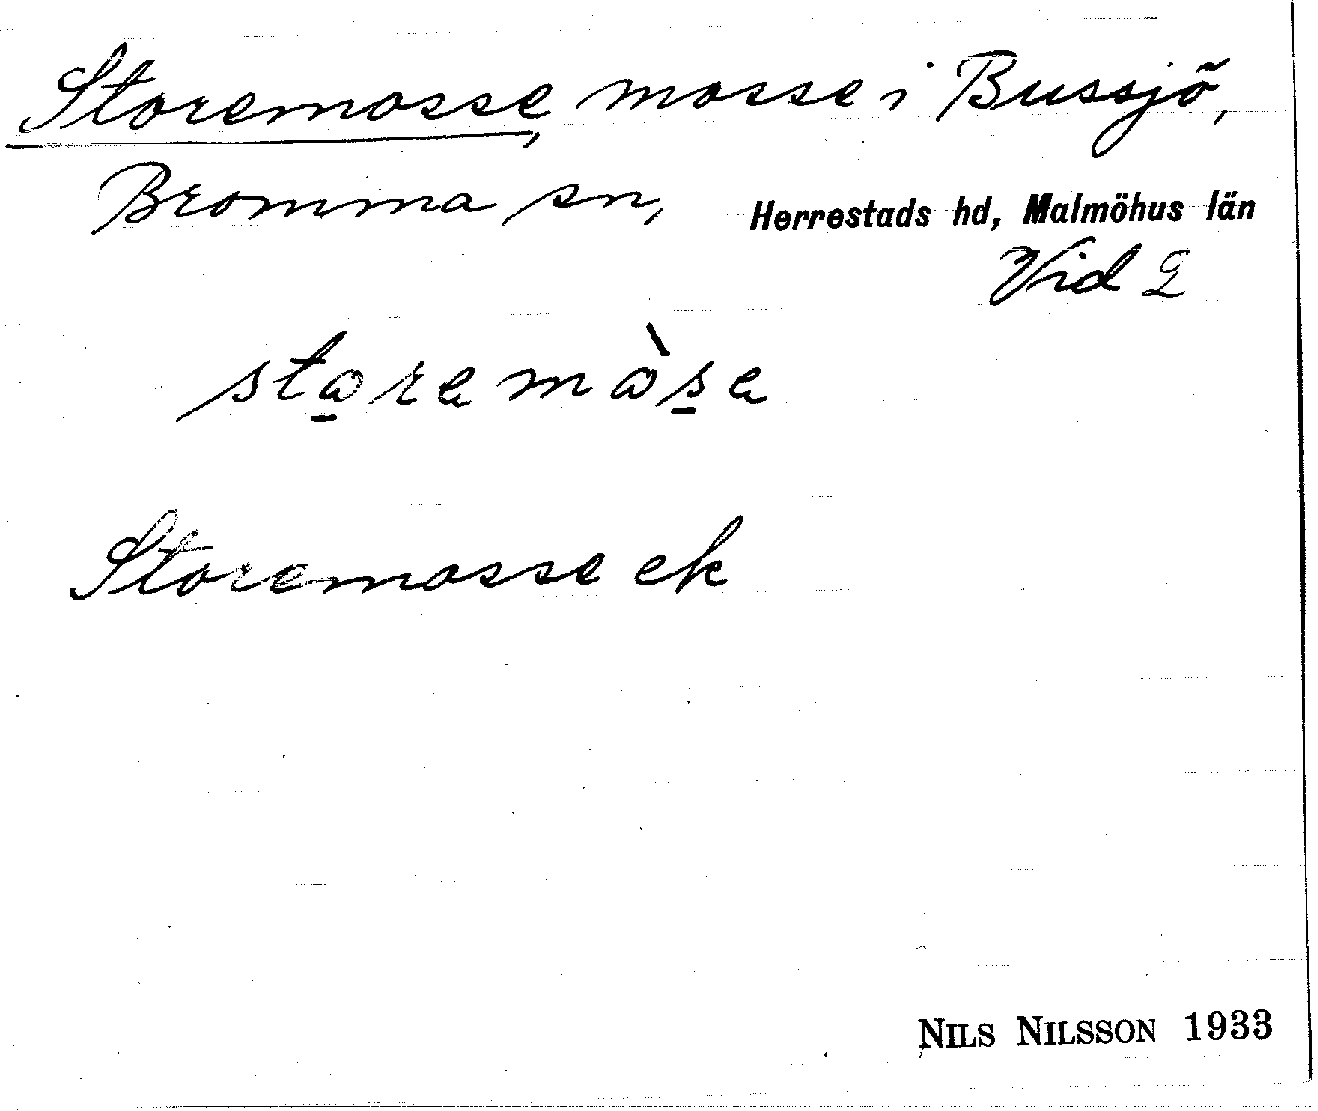 Storemosse, mosse i Bussjö,
Bromma sn, Herrestads hd, Malmöhus län
Vid 2
storemòse
Storemosse ek
NILS NILSSON 1933